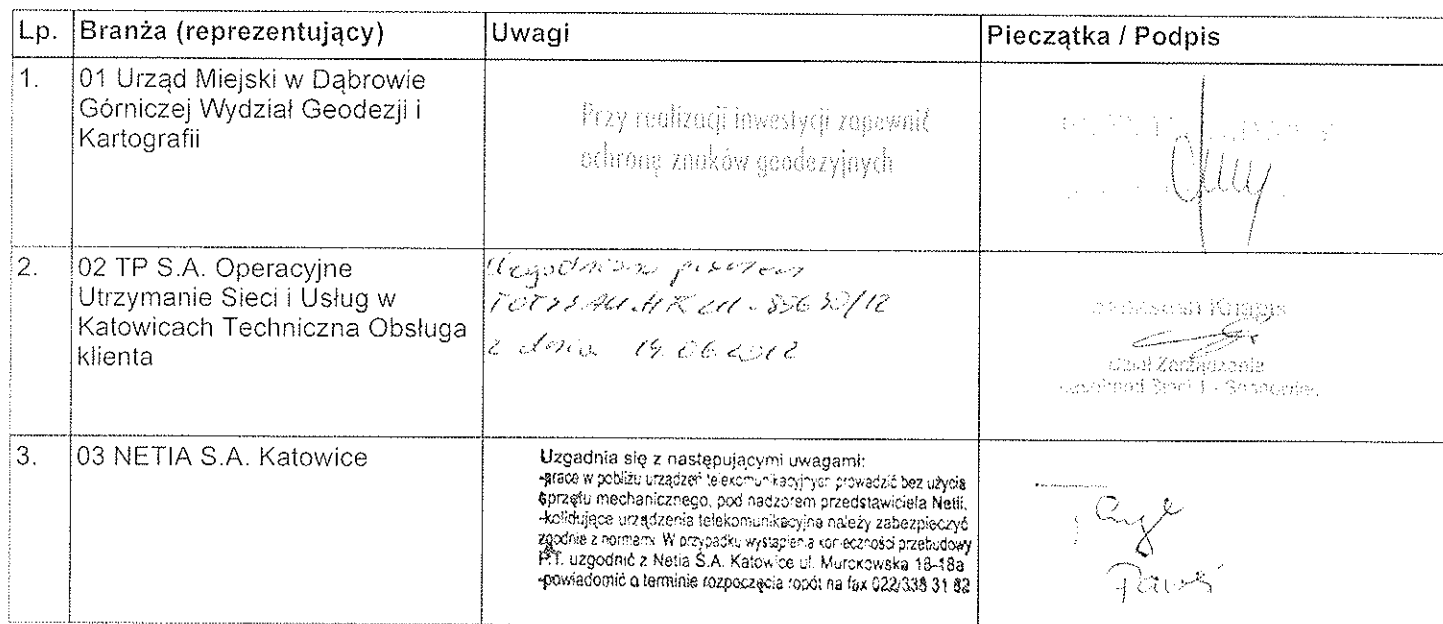 Lp. Branża (reprezentujący) Uwagi Pieczątka / Podpis
1. 01 Urząd Miejski w Dąbrowie
Górniczej Wydział Geodezji i
Kartografii
Przy realizacji inwestycji zapewnić
ochronę znaków geodezyjnych
2. 02 TP S.A. Operacyjne
Utrzymanie Sieci i Usług w
Katowicach Techniczna Obsługa
klienta
z dnia 14.06.2012
3. 03 NETIA S.A. Katowice
Uzgadnia się z następującymi uwagami:
-prace w pobliżu urządzeń telekomunikacyjnych prowadzić bez użycia
sprzętu mechanicznego, pod nadzorem przedstawiciela Netii.
-kolidujące urządzenia telekomunikacyjne należy zabezpieczyć
zgodnie z normami. W przypadku wystąpienia konieczności przebudowy
P.T. uzgodnić z Netia S.A. Katowice ul. Murckowska 18-18a
-powiadomić o terminie rozpoczęcia robót na fax 022/338 31 82